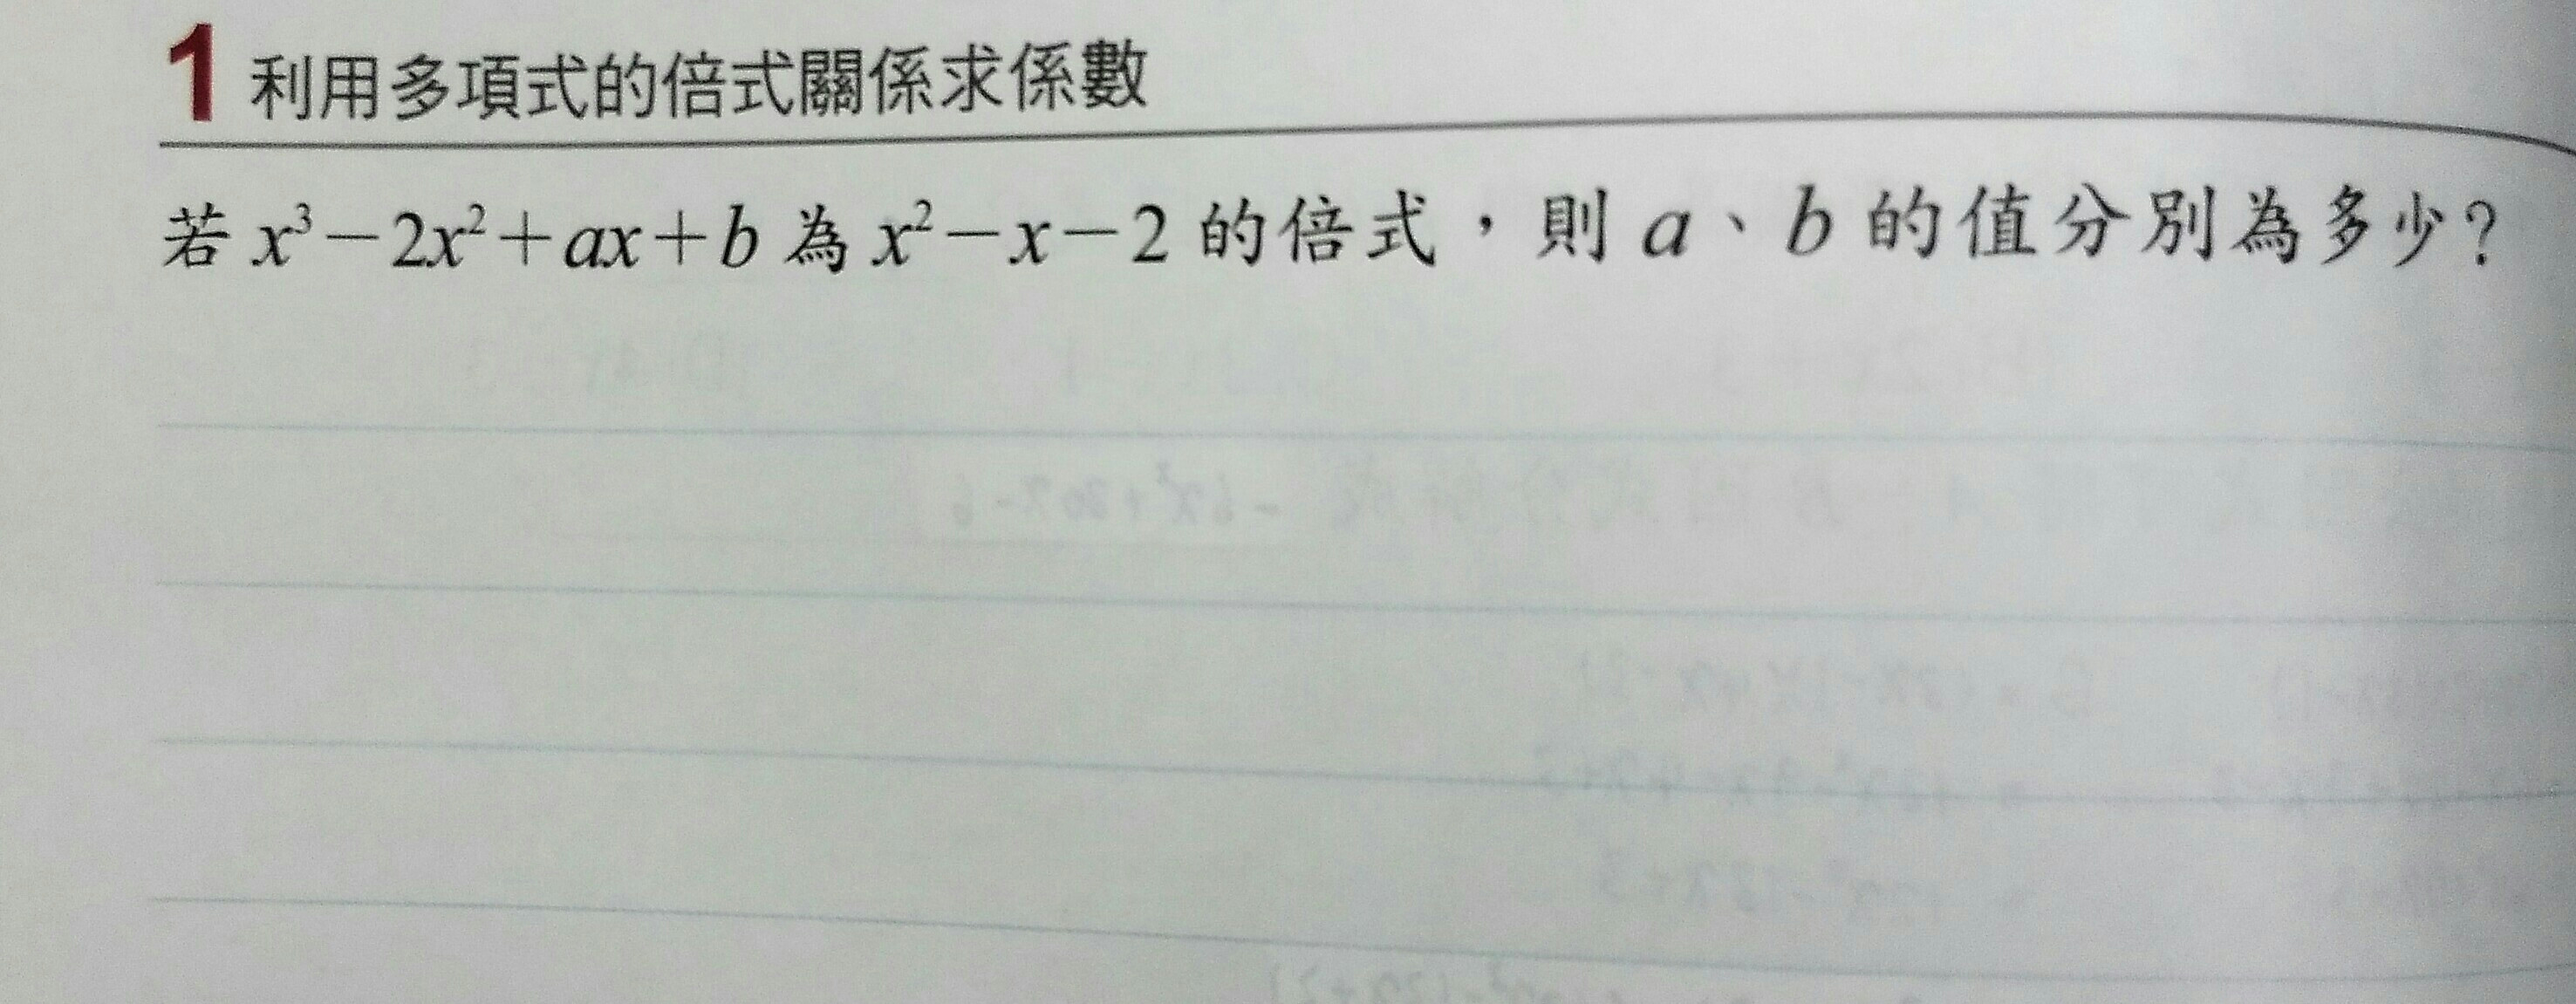 1 利用多項式的倍式關係求係數
若 x³-2x²+ax+b 為 x²-x-2 的倍式，則 a、b 的值分別為多少？